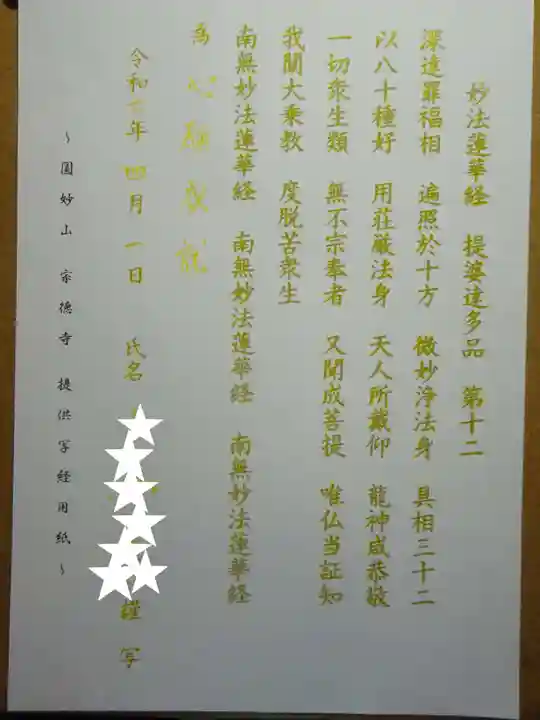 妙法蓮華経 提婆達多品 第十二
深達罪福相 遍照於十方 微妙浄法身 具相三十二
以八十種好 用荘厳法身 天人所戴仰 龍神咸恭敬
一切衆生類 無不宗奉者 又聞成菩提 唯仏当証知
我闡大乗教 度脱苦衆生
南無妙法蓮華経 南無妙法蓮華経 南無妙法蓮華経
為 心願成就
令和 年 四月 一日 氏名 謹写
~圓妙山 宗徳寺 提供写経用紙~